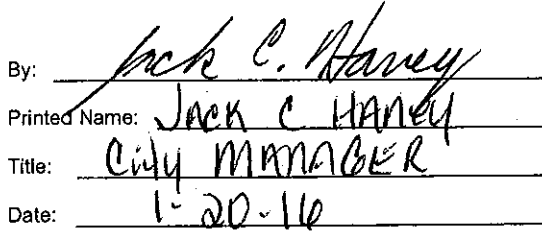 By: Jack C. Haney
Printed Name: JACK C HANEY
Title: City MANAGER
Date: 1-20-16